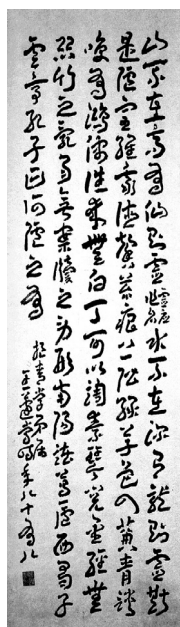 山不在高有仙則靈靈應作名水不在深有龍則靈斯
是陋室唯吾德馨苔痕上階綠草色入簾青談
咲有鴻儒往來無白丁可以調素琴閱金經無
絲竹之亂耳無案牘之勞形南陽諸葛廬西蜀子
雲亭孔子云何陋之有
王蘧常時年八十有八